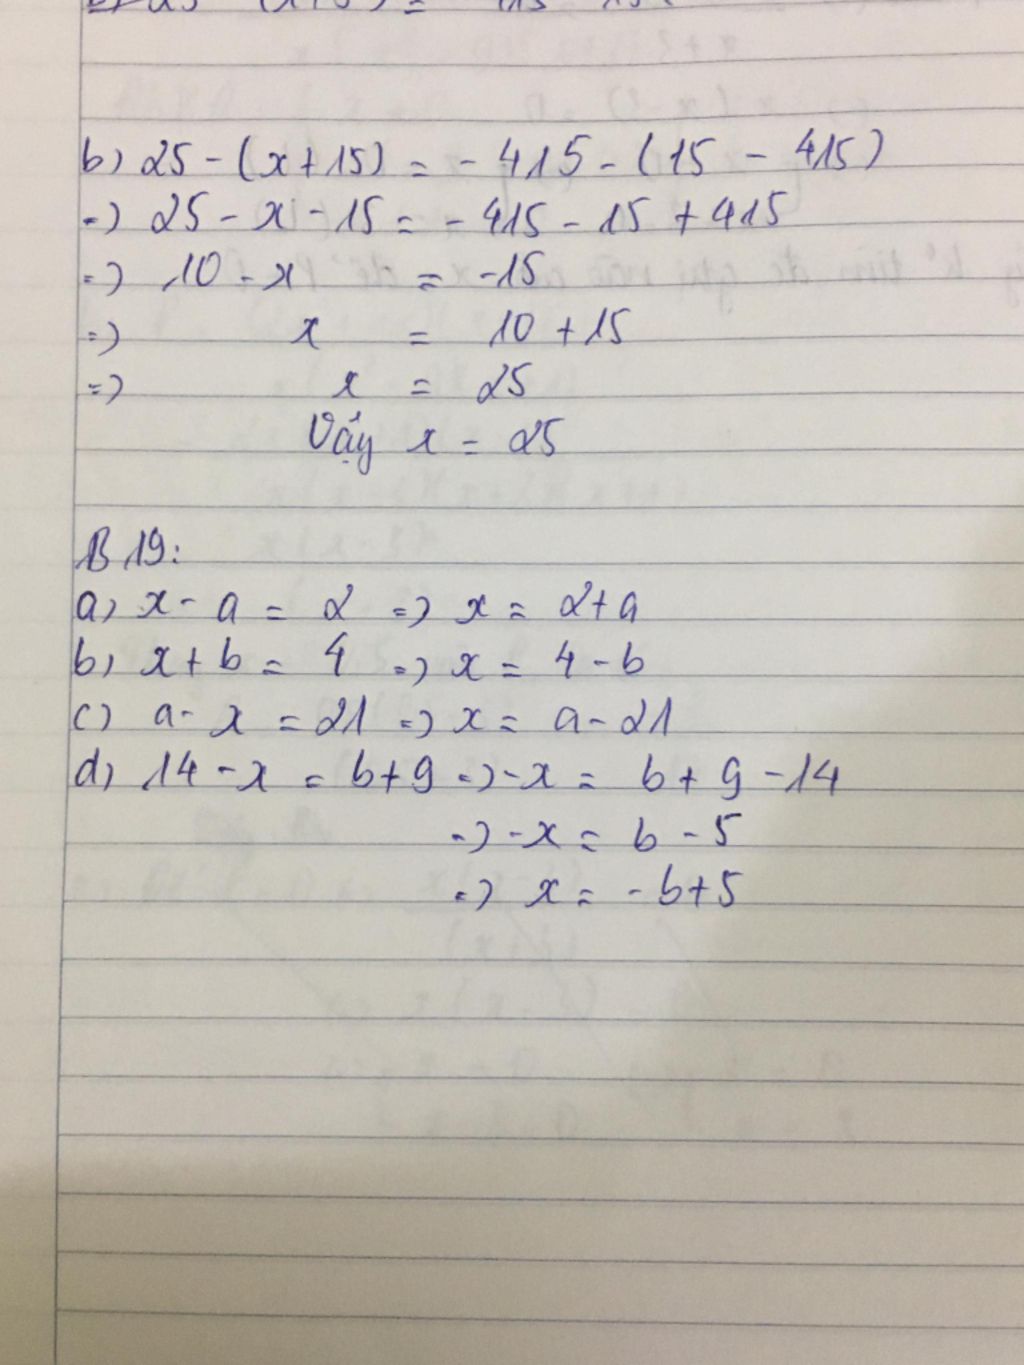 b) 25 - (x + 15) = - 415 - (15 - 415)
=) 25 - x - 15 = - 415 - 15 + 415
=) 10 - x = -15
=) x = 10 + 15
=) x = 25
Vậy x = 25
B 19:
a) x - a = 2 =) x = 2 + a
b) x + b = 4 =) x = 4 - b
c) a - x = 21 =) x = a - 21
d) 14 - x = b + 9 =) -x = b + 9 - 14
=) -x = b - 5
=) x = -b + 5